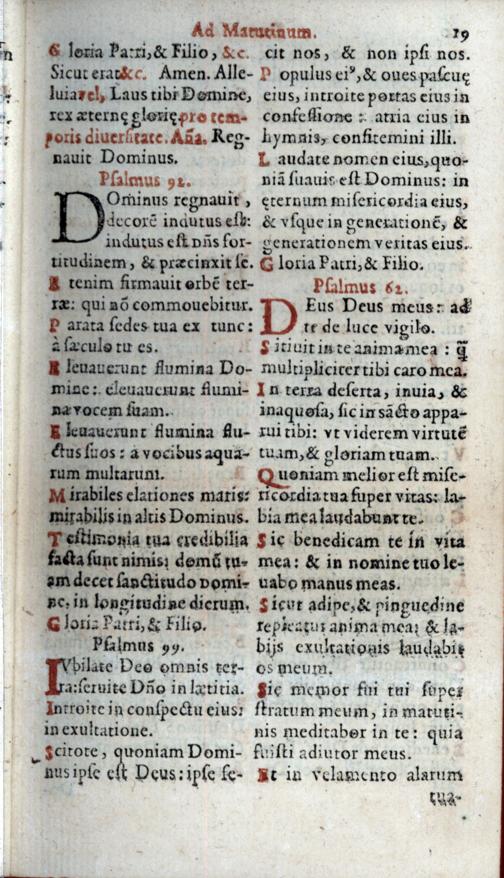 Ad Matutinum. 19
Gloria Patri, & Filio, &c.
Sicut erat &c. Amen. Alle-
luia vel, Laus tibi Domine,
rex æternę glorię. pro tem-
poris diuersitate. Aña. Reg-
nauit Dominus.
Psalmus 92.
DOminus regnauit,
decorē indutus est:
indutus est dñs for-
titudinem, & præcinxit se.
Etenim firmauit orbē ter-
ræ: qui nō commouebitur.
Parata sedes tua ex tunc:
à sæculo tu es.
Eleuauerunt flumina Do-
mine: eleuauerunt flumi-
na vocem suam.
Eleuauerunt flumina flu-
ctus suos: a vocibus aqua-
rum multarum.
Mirabiles elationes maris:
mirabilis in altis Dominus.
Testimonia tua credibilia
facta sunt nimis: domū tu-
am decet sanctitudo Domi-
ne, in longitudine dierum.
Gloria Patri, & Filio.
Psalmus 99.
IVbilate Deo omnis ter-
ra: seruite Dño in lætitia.
Introite in conspectu eius:
in exultatione.
Scitote, quoniam Domi-
nus ipse est Deus: ipse fe-
cit nos, & non ipsi nos.
Populus eiꝰ, & oues pascuę
eius, introite portas eius in
confessione: atria eius in
hymnis, confitemini illi.
Laudate nomen eius, quo-
niā suauis est Dominus: in
ęternum misericordia eius,
& vsque in generationē, &
generationem veritas eius.
Gloria Patri, & Filio.
Psalmus 62.
DEus Deus meus: ad
te de luce vigilo.
Sitiuit in te anima mea: q̃
multipliciter tibi caro mea.
In terra deserta, inuia, &
inaquosa, sic in sācto appa-
rui tibi: vt viderem virtutē
tuam, & gloriam tuam.
Quoniam melior est mise-
ricordia tua super vitas: la-
bia mea laudabunt te.
Sic benedicam te in vita
mea: & in nomine tuo le-
uabo manus meas.
Sicut adipe, & pinguedine
repleatur anima mea: & la-
bijs exultationis laudabit
os meum.
Sic memor fui tui super
stratum meum, in matuti-
nis meditabor in te: quia
fuisti adiutor meus.
Et in velamento alarum
tua-